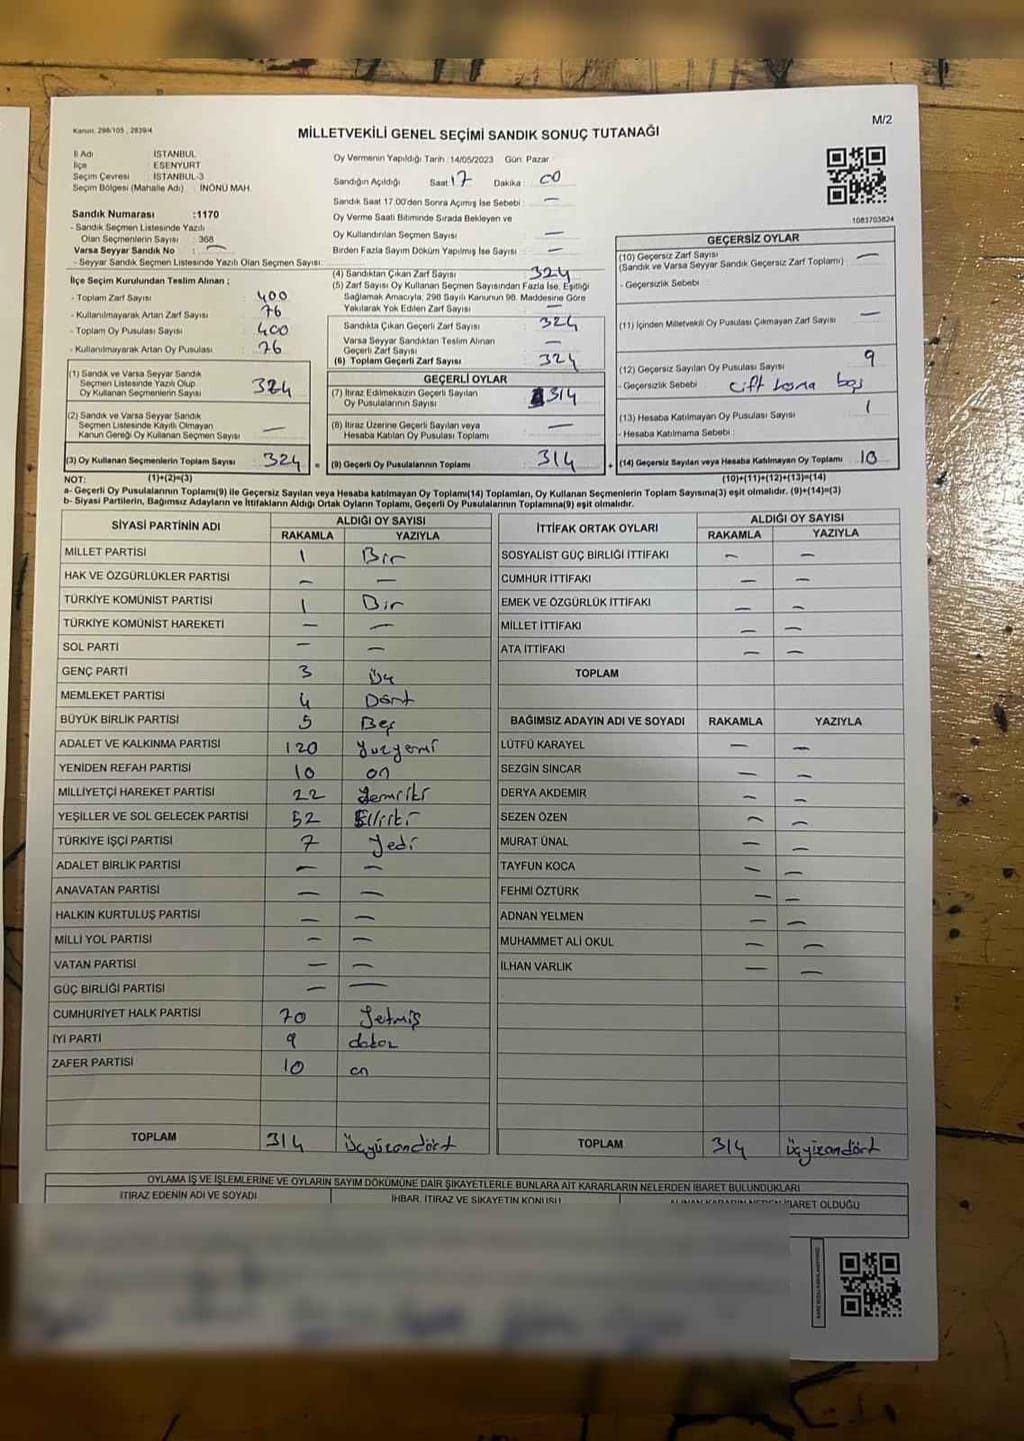 M/2
Kanun, 298/105 , 2839/4
MİLLETVEKİLİ GENEL SEÇİMİ SANDIK SONUÇ TUTANAĞI
İl Adı İSTANBUL
İlçe ESENYURT
Seçim Çevresi İSTANBUL-3
Seçim Bölgesi (Mahalle Adı) : İNÖNÜ MAH.
Sandık Numarası :1170
- Sandık Seçmen Listesinde Yazılı
Olan Seçmenlerin Sayısı : 368
Varsa Seyyar Sandık No : —
- Seyyar Sandık Seçmen Listesinde Yazılı Olan Seçmen Sayısı:
İlçe Seçim Kurulundan Teslim Alınan ;
- Toplam Zarf Sayısı : 400
- Kullanılmayarak Artan Zarf Sayısı : 76
- Toplam Oy Pusulası Sayısı : 400
- Kullanılmayarak Artan Oy Pusulası : 76
(1) Sandık ve Varsa Seyyar Sandık
Seçmen Listesinde Yazılı Olup
Oy Kullanan Seçmenlerin Sayısı 324
(2) Sandık ve Varsa Seyyar Sandık
Seçmen Listesinde Kayıtlı Olmayan
Kanun Gereği Oy Kullanan Seçmen Sayısı —
(3) Oy Kullanan Seçmenlerin Toplam Sayısı 324
Oy Vermenin Yapıldığı Tarih :14/05/2023 Gün: Pazar
Sandığın Açıldığı Saat : 17 Dakika : 00
Sandık Saat 17.00'den Sonra Açımış İse Sebebi : —
Oy Verme Saati Bitiminde Sırada Bekleyen ve
Oy Kullandırılan Seçmen Sayısı : —
Birden Fazla Sayım Döküm Yapılmış İse Sayısı : —
(4) Sandıktan Çıkan Zarf Sayısı 324
(5) Zarf Sayısı Oy Kullanan Seçmen Sayısından Fazla İse, Eşitliği
Sağlamak Amacıyla, 298 Sayılı Kanunun 98. Maddesine Göre
Yakılarak Yok Edilen Zarf Sayısı —
Sandıkta Çıkan Geçerli Zarf Sayısı 324
Varsa Seyyar Sandıktan Teslim Alınan
Geçerli Zarf Sayısı —
(6) Toplam Geçerli Zarf Sayısı 324
GEÇERLİ OYLAR
(7) İtiraz Edilmeksizin Geçerli Sayılan
Oy Pusulalarının Sayısı 314
(8) İtiraz Üzerine Geçerli Sayılan veya
Hesaba Katılan Oy Pusulası Toplamı —
= (9) Geçerli Oy Pusulalarının Toplamı 314
1083703824
GEÇERSİZ OYLAR
(10) Geçersiz Zarf Sayısı —
(Sandık ve Varsa Seyyar Sandık Geçersiz Zarf Toplamı)
- Geçersizlik Sebebi :
(11) İçinden Milletvekili Oy Pusulası Çıkmayan Zarf Sayısı —
(12) Geçersiz Sayılan Oy Pusulası Sayısı 9
- Geçersizlik Sebebi : çift basma boş
(13) Hesaba Katılmayan Oy Pusulası Sayısı 1
- Hesaba Katılmama Sebebi :
+ (14) Geçersiz Sayılan veya Hesaba Katılmayan Oy Toplamı 10
NOT: (1)+(2)=(3) (10)+(11)+(12)+(13)=(14)
a- Geçerli Oy Pusulalarının Toplamı(9) ile Geçersiz Sayılan veya Hesaba katılmayan Oy Toplamı(14) Toplamları, Oy Kullanan Seçmenlerin Toplam Sayısına(3) eşit olmalıdır. (9)+(14)=(3)
b- Siyasi Partilerin, Bağımsız Adayların ve İttifakların Aldığı Ortak Oyların Toplamı, Geçerli Oy Pusulalarının Toplamına(9) eşit olmalıdır.
SİYASİ PARTİNİN ADI ALDIĞI OY SAYISI
RAKAMLA YAZIYLA
MİLLET PARTİSİ 1 Bir
HAK VE ÖZGÜRLÜKLER PARTİSİ — —
TÜRKİYE KOMÜNİST PARTİSİ 1 Bir
TÜRKİYE KOMÜNİST HAREKETİ — —
SOL PARTİ — —
GENÇ PARTİ 3 Üç
MEMLEKET PARTİSİ 4 Dört
BÜYÜK BİRLİK PARTİSİ 5 Beş
ADALET VE KALKINMA PARTİSİ 120 Yuzyemi
YENİDEN REFAH PARTİSİ 10 on
MİLLİYETÇİ HAREKET PARTİSİ 22
YEŞİLLER VE SOL GELECEK PARTİSİ 52 Elliiki
TÜRKİYE İŞÇİ PARTİSİ 7 Yedi
ADALET BİRLİK PARTİSİ — —
ANAVATAN PARTİSİ — —
HALKIN KURTULUŞ PARTİSİ — —
MİLLİ YOL PARTİSİ — —
VATAN PARTİSİ — —
GÜÇ BİRLİĞİ PARTİSİ — —
CUMHURİYET HALK PARTİSİ 70 Yetmiş
İYİ PARTİ 9 dokuz
ZAFER PARTİSİ 10 on
TOPLAM 314 Üçyüzondört
İTTİFAK ORTAK OYLARI ALDIĞI OY SAYISI
RAKAMLA YAZIYLA
SOSYALİST GÜÇ BİRLİĞİ İTTİFAKI — —
CUMHUR İTTİFAKI — —
EMEK VE ÖZGÜRLÜK İTTİFAKI — —
MİLLET İTTİFAKI — —
ATA İTTİFAKI — —
TOPLAM
BAĞIMSIZ ADAYIN ADI VE SOYADI RAKAMLA YAZIYLA
LÜTFÜ KARAYEL — —
SEZGİN SİNCAR — —
DERYA AKDEMİR — —
SEZEN ÖZEN — —
MURAT ÜNAL — —
TAYFUN KOCA — —
FEHMİ ÖZTÜRK — —
ADNAN YELMEN — —
MUHAMMET ALİ OKUL — —
İLHAN VARLIK — —
TOPLAM 314 üçyüzondört
OYLAMA İŞ VE İŞLEMLERİNE VE OYLARIN SAYIM DÖKÜMÜNE DAİR ŞİKAYETLERLE BUNLARA AİT KARARLARIN NELERDEN İBARET BULUNDUKLARI
İTİRAZ EDENİN ADI VE SOYADI İHBAR, İTİRAZ VE ŞİKAYETİN KONUSU ALINAN KARARIN NEDEN İBARET OLDUĞU